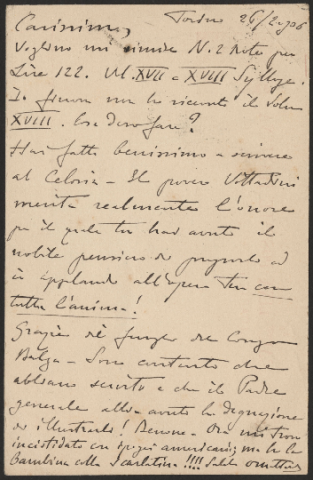 Torino 26/2 906
Carissimo,
Vogliono mi rimetta N. 2 note per
Lire 122. Vol. XVII e XVIII Sylloge.
Io finora non ho ricevuto il Volume
XVIII. Cosa devo fare?
Hai fatto benissimo a scrivere
al Celoria – Il povero Vittadini
merita realmente l'onore
per il quale tu hai avuto il
nobile pensiero di proporlo ed
io applaudo all'opera tua con
tutta l'anima!
Grazie dei funghi del Congo
Belga – Sono contento che
abbiano servito e che il Padre
generale abbia avuto la degnazione
di illustrarli! Benone – Ora mi trovo
incistidato con funghi americani; ma ho la
Bambina colla Scarlatina!!!! Saluti